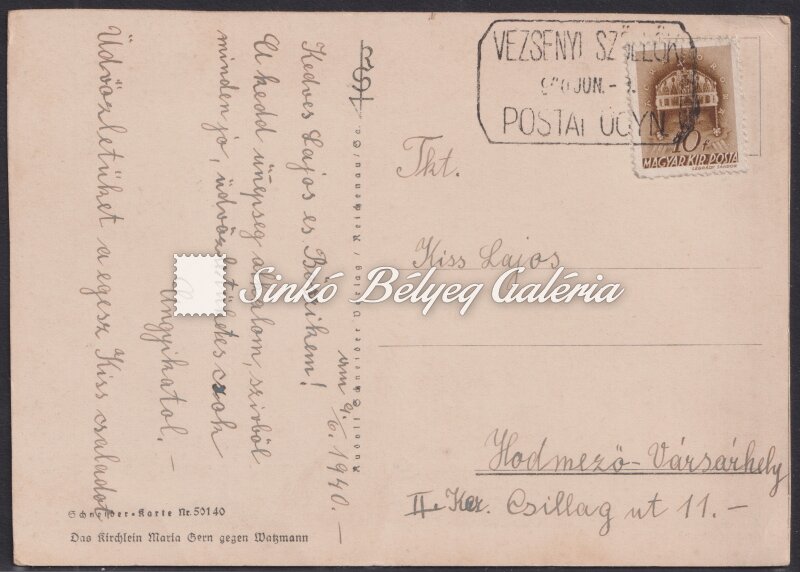 VEZSENYI SZŐLLŐK
940 JUN. - 9.
POSTAI ÜGYN.
10 f
MAGYAR KIR. POSTA
LÉGRÁDY SÁNDOR
Tkt.
Kiss Lajos
Hodmező-Vársárhely
II. Ker. Csillag ut 11.-
am 9./6. 1940.-
Kedves Lajos es
A kedd ünepség alkalom, szivböl
minden jo, üdvözletetes csok
Angyikatol.-
Üdvözletüket a egesz Kiss csaladot
Rudolf Schneider Verlag / Reichenau/Sa.
Schneider-Karte Nr. 50140
Das Kirchlein Maria Gern gegen Watzmann
Sinkó Bélyeg Galéria